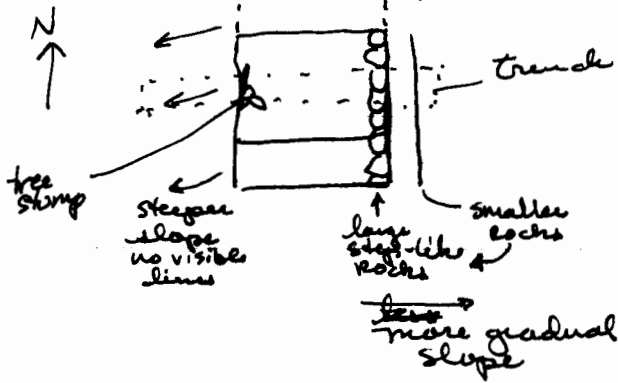 N
trench
tree
stump
steeper
slope
no visible
lines
large
step-like
rocks
smaller
rocks
more gradual
slope